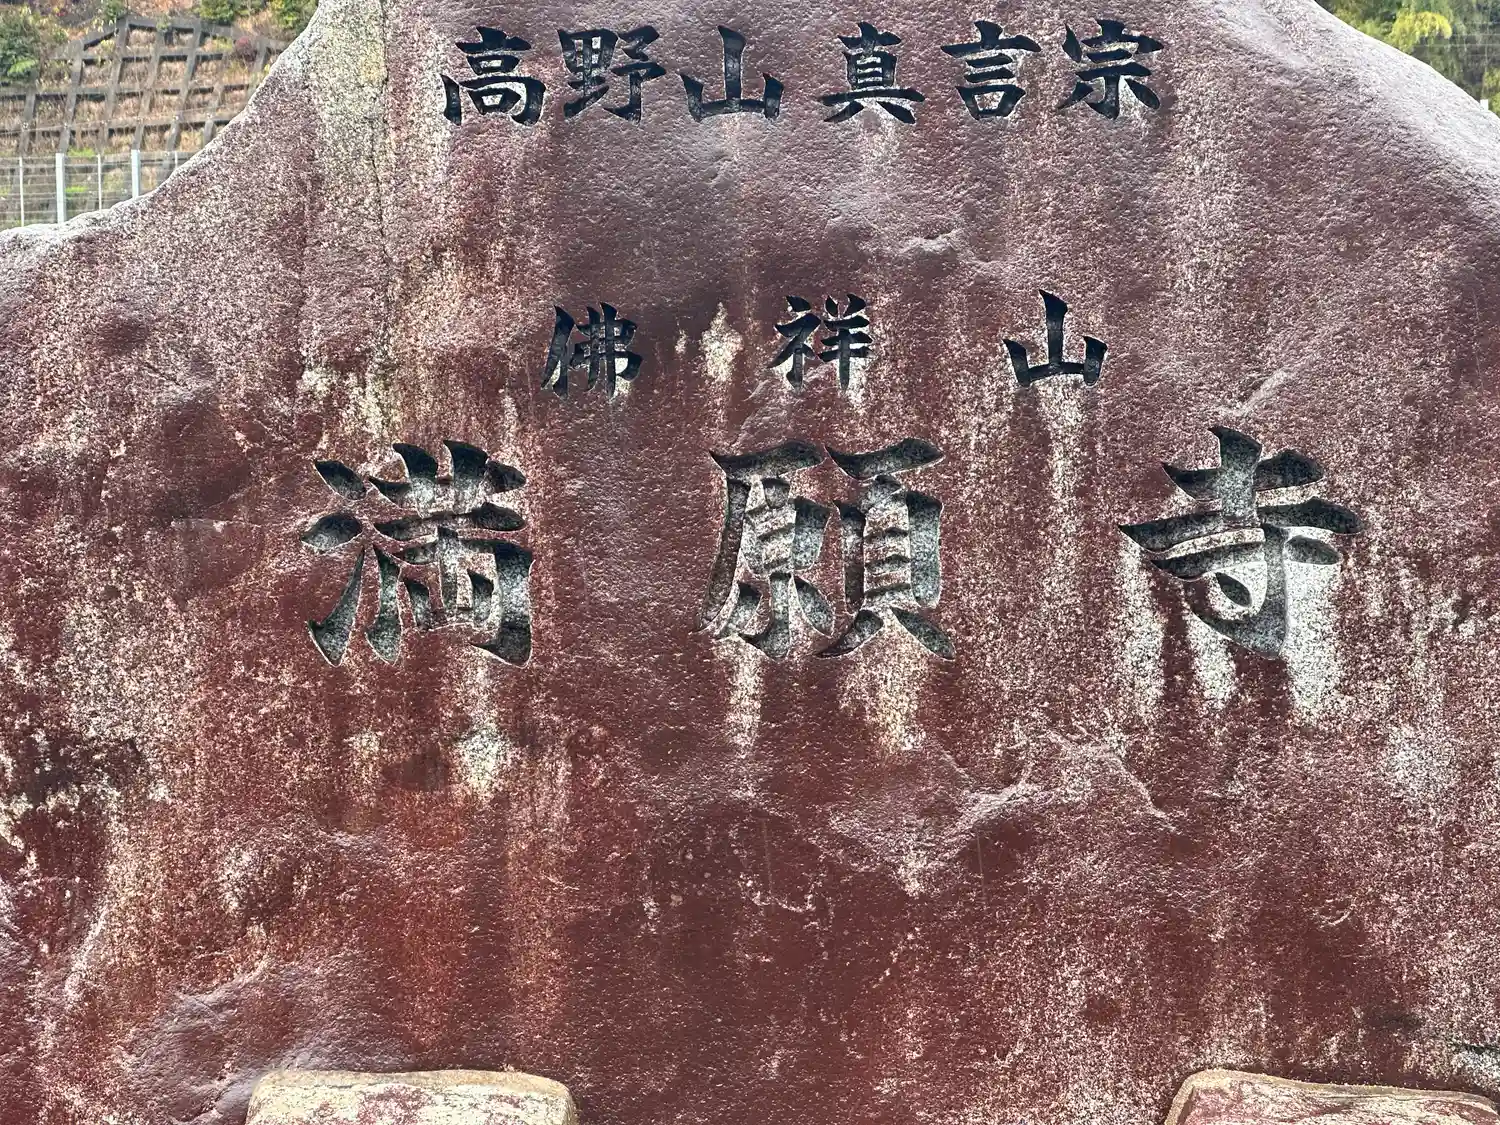 高野山真言宗
佛祥山
満願寺